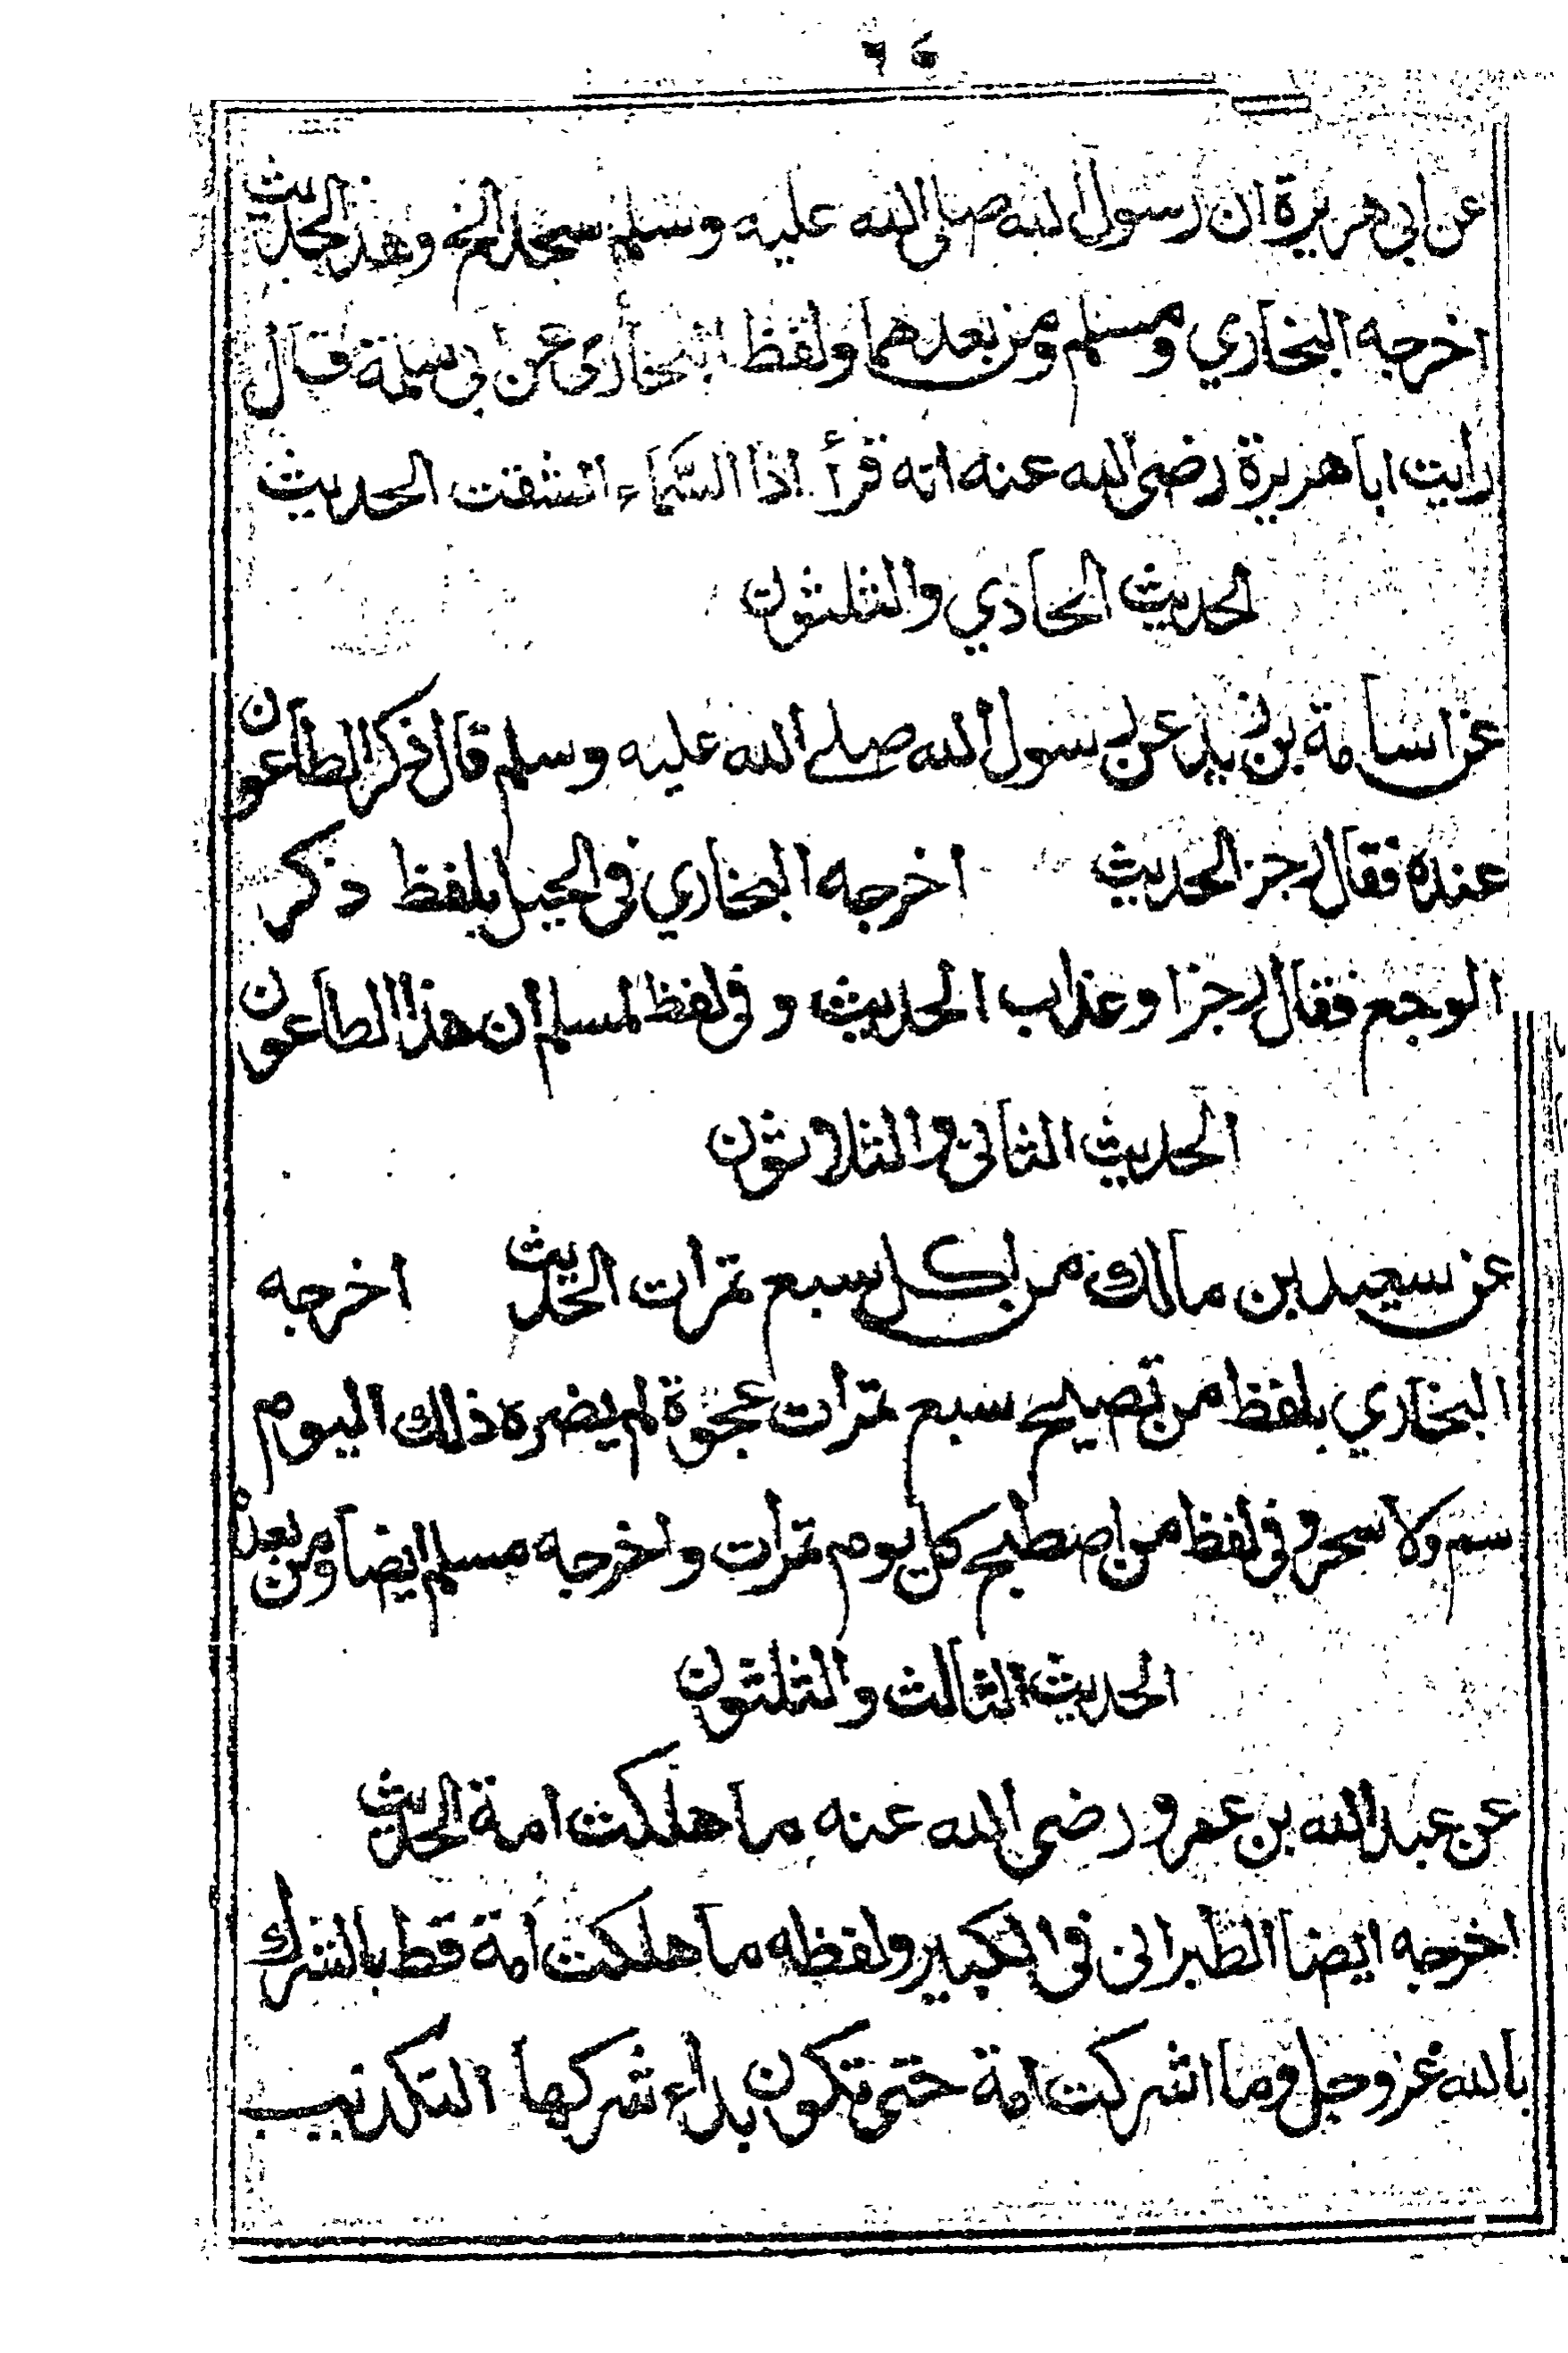 عن ابى هريرة ان رسول الله صلى الله عليه وسلم سجد الخ وهذ الحديث
اخرجه البخاري ومسلم ومن بعدهما ولفظ البخارى عن ابى سلمة قال
رايت ابا هريرة رضى الله عنه انه قرأ اذا السماء انشقت الحديث
الحديث الحادي والثلثون
عن اسامة بن زيد عن رسول الله صلے الله عليه وسلم قال ذكر الطاعون
عنده فقال رجز الحديث اخرجه البخاري فى الحيل بلفظ ذكر
الوجع فقال رجز او عذاب الحديث و فى لفظ لمسلم ان هذا الطاعون
الحديث الثانى والثلاثون
عن سعيد بن مالك من اكل سبع تمرات الحديث اخرجه
البخاري بلفظ من تصبح سبع تمرات عجوة لم يضره ذلك اليوم
سم ولا سحر و فى لفظ من اصطبح كل يوم تمرات واخرجه مسلم ايضا ومن بعده
الحديث الثالث والثلثون
عن عبد الله بن عمرو رضى الله عنه ما هلكت امة الحديث
اخرجه ايضا الطبرانى فى الكبير ولفظه ما هلكت امة قط بالشرك
بالله عز وجل وما اشركت امة حتى تكون بداء شركها التكذيب